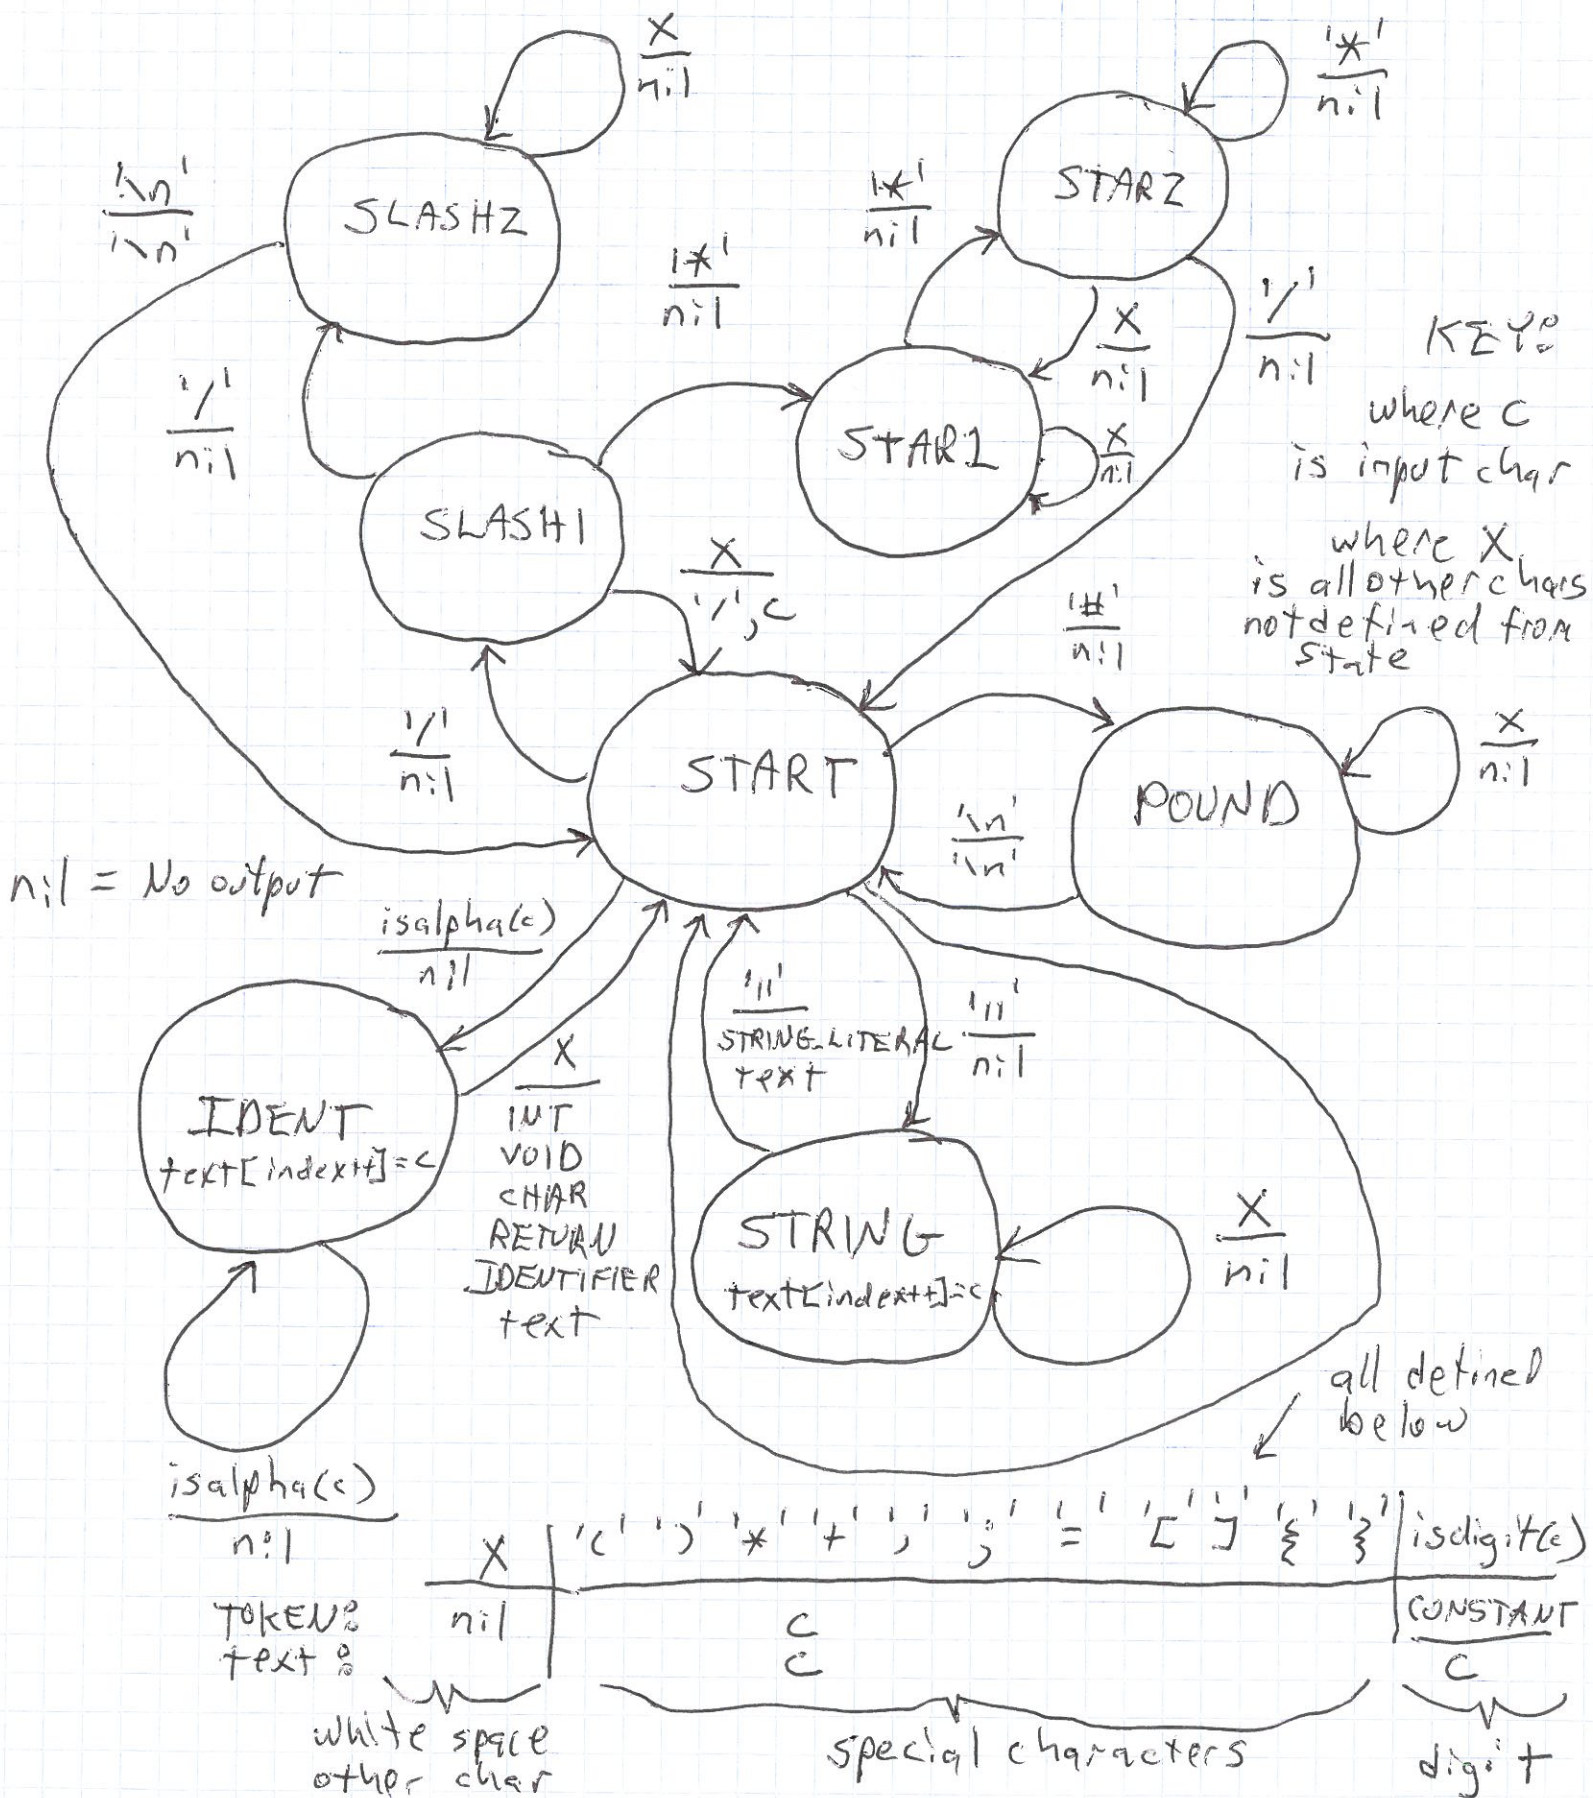 X
nil
'*'
nil
'\n'
'\n'
SLASH2
'*'
nil
STAR2
'*'
nil
X
nil
'/'
nil
KEY:
where c
is input char
where X
is all other chars
not defined from
state
'/'
nil
STAR1
X
nil
SLASH1
X
'/', c
'#'
nil
'/'
nil
START
POUND
X
nil
'\n'
'\n'
nil = No output
isalpha(c)
nil
'"'
STRING_LITERAL
text
'"'
nil
IDENT
text[index++]=c
X
INT
VOID
CHAR
RETURN
IDENTIFIER
text
STRING
text[index++]=c
X
nil
all defined
below
isalpha(c)
nil
X '(' ')' '*' '+' ',' ';' '=' '[' ']' '{' '}' isdigit(c)
TOKEN: nil c CONSTANT
text: c c
white space
other char
special characters
digit